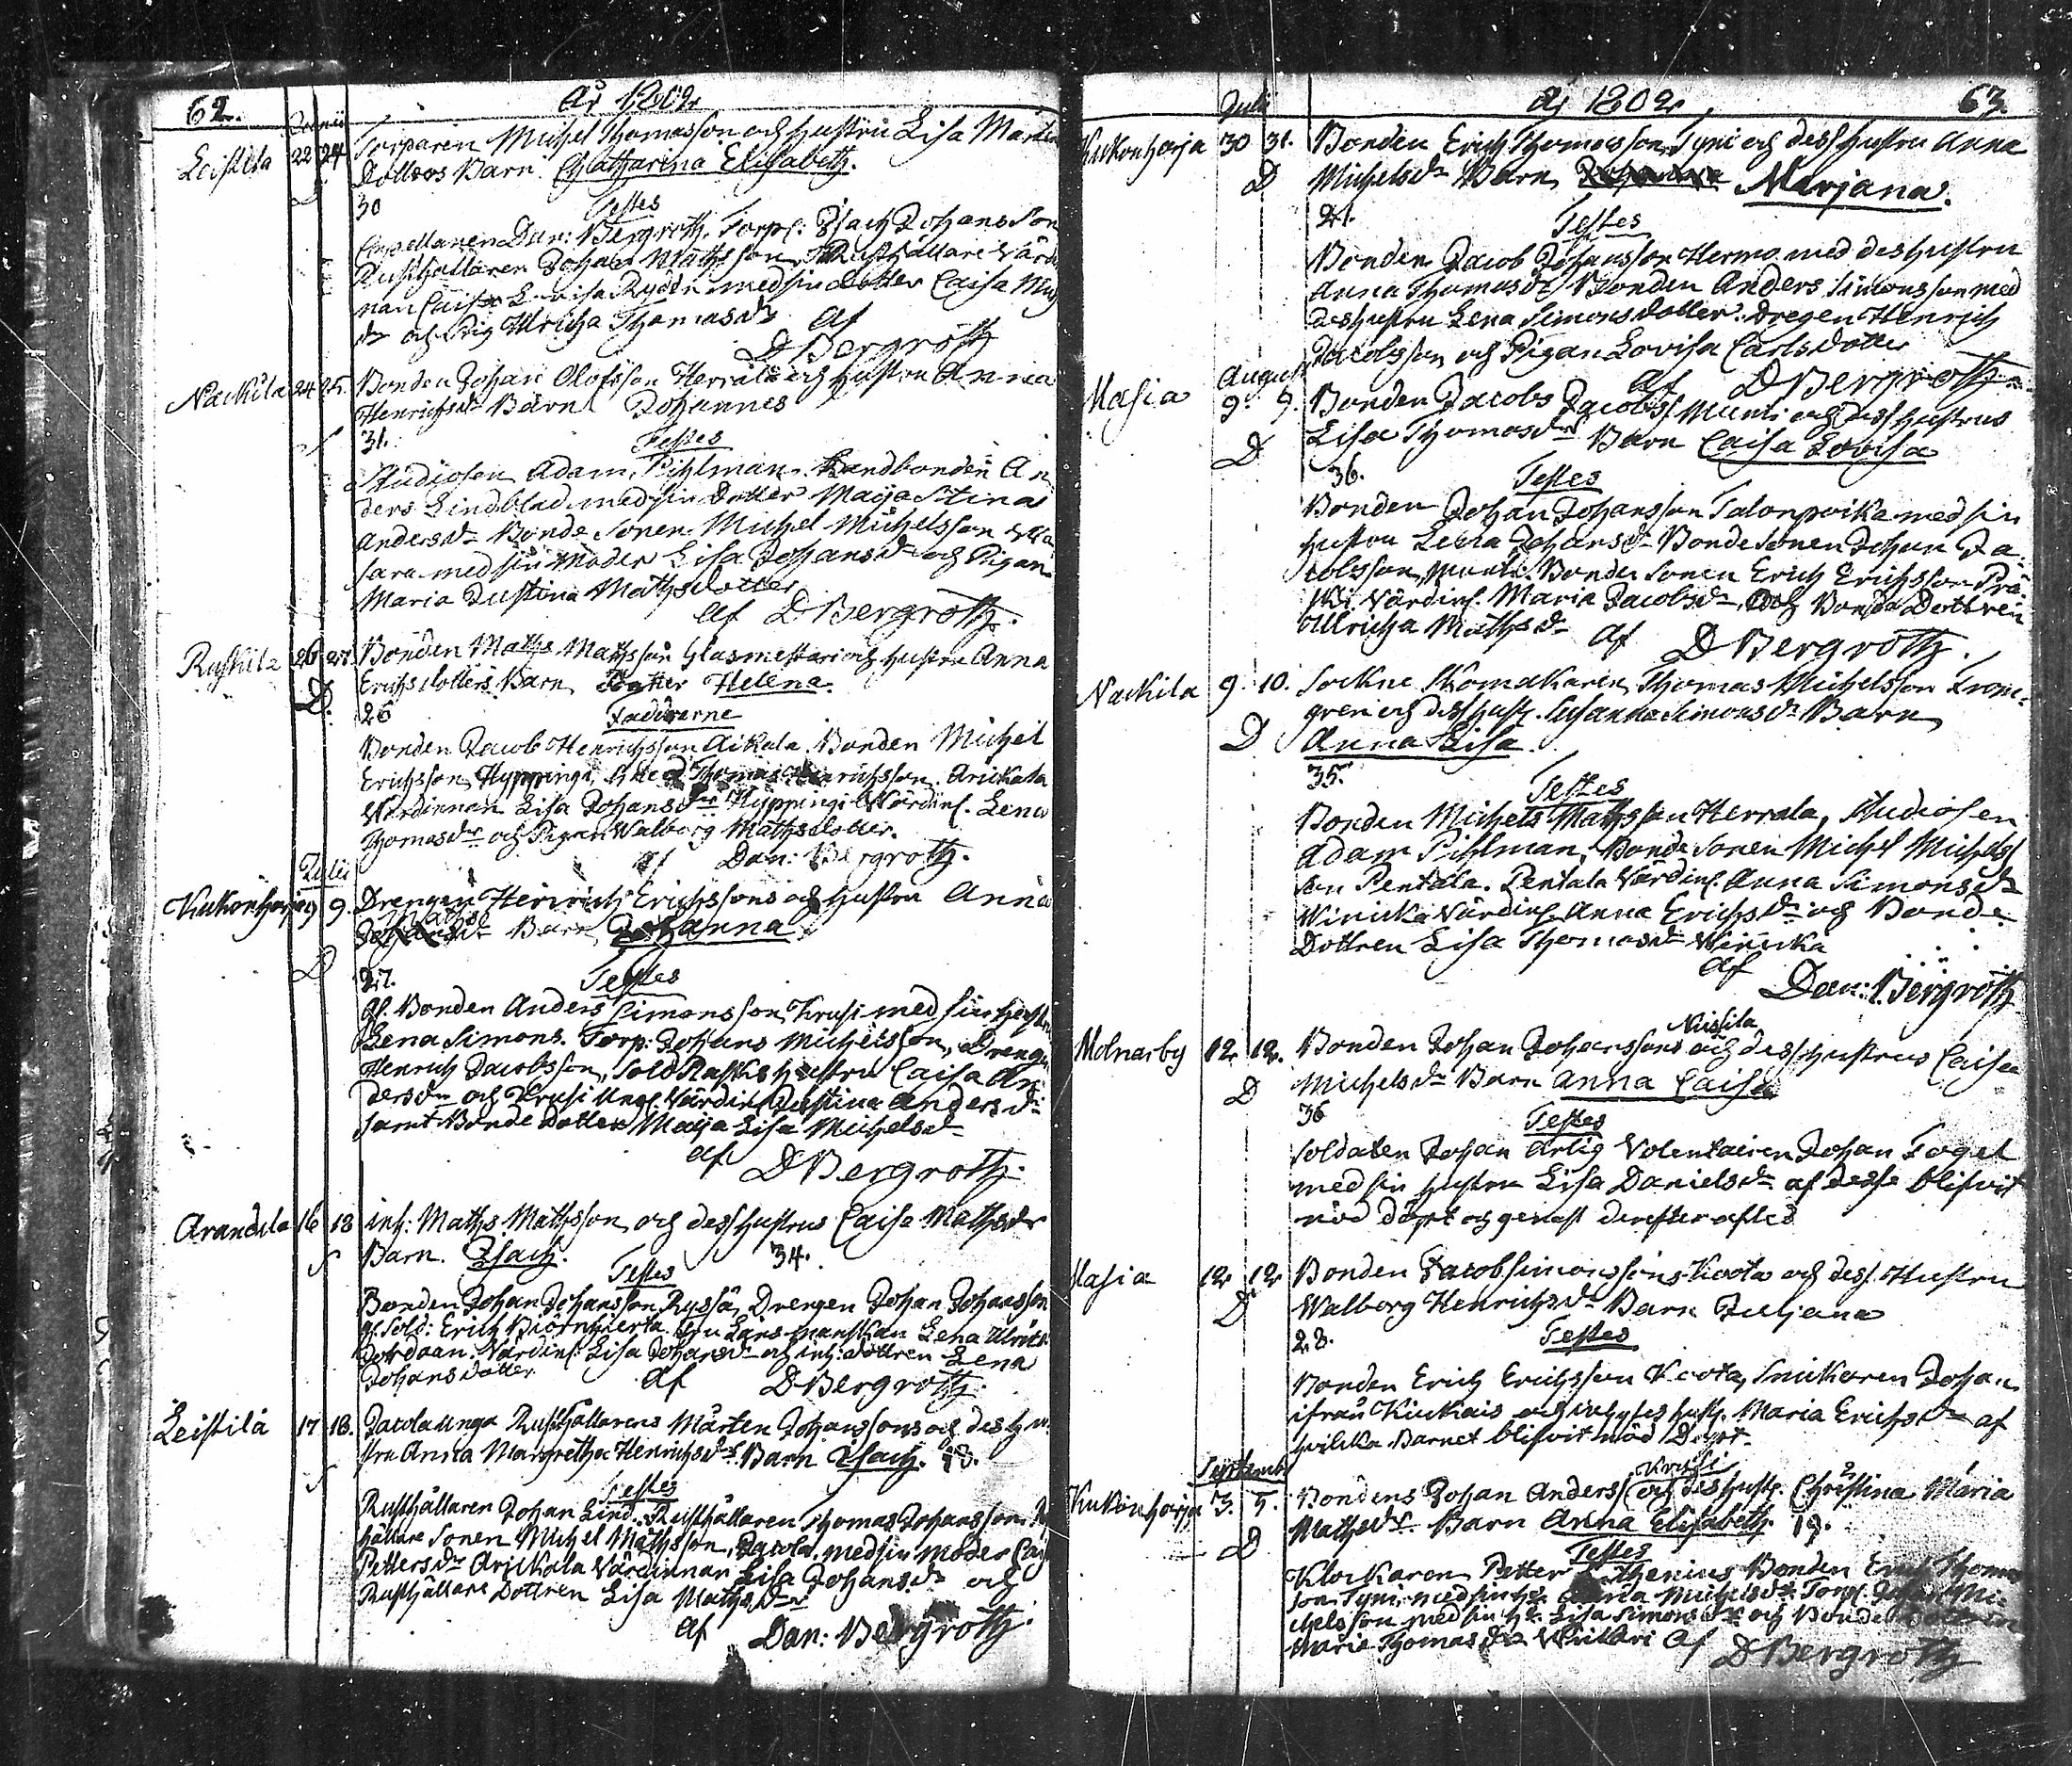 62. År 1802
Junii
Leistila 22 24 Torparen Michel Thomasson och hustru Lisa Mårtens
dotters Barn Chatharina Elisabeth.
D
30 Testes
Capellanen Dan: Bergroth. Torp: Isach Johansson
Rusthållaren Johan Mathsson, Rusthållare Värdin
nan Caisa Lovisa med sin dotter Caisa Mich
dr och Pig Ulricha Thomasdr af
D Bergroth
Nackila 24 25. Bonden Johan Olofsson Herrala och hustru Anna
Henrichsdr Barn Johannes
S
31. Testes
Studiosen Adam Pihlman. Landbonden An
ders Lindblad med sin dotter Maja Stina
Andersdr Bonde Sonen Michel Michelsson
med sin Moder Lisa Johansdr och Pigan
Maria Justina Mathsdotter
af D Bergroth.
26 27. Bonden Maths Mathsson Glasmestari och hustru Anna
Erichsdotters Barn Dotter Helena.
D.
26 Faddrarne
Bonden Jacob Henrichsson Aikala. Bonden Michel
Erichsson Hyppingi, Thomas Henrichsson Arickala
Värdinnan Lisa Johansdr Hyppingi Värdinf. Lena
Thomasdr och Pigan Walborg Mathsdotter.
af Dan: Bergroth.
Julii
Kukonharja 9 9. Drengen Henrich Erichssons och hustru Anna
Mathsdr Barn Johanna
D
27. Testes
gl. Bonden Anders Simonsson Krusi med sin hustru
Lena Simons. Torp: Johans Michelsson, Dreng
Henrich Jacobsson, Sold Rasks hustru Caisa An
dersdr och Krusi Unge Värdin Justina Andersdr
samt Bonde dotter Maja Lisa Michelsdr
af D Bergroth.
Arandila 16 18 inh: Maths Mathsson och dess hustrus Caisa Mathsdr
Barn. Isach. 34.
S
Testes
Bonden Johan Johansson Ryssä, Drengen Johan Johansson
gl. Sold: Erich Biörnhierta. Fru Länsmanskan Lena Ulrica
Värdinf. Lisa Johansdr och inh: dottren Lena
Johansdotter
af D Bergroth.
Leistilä 17 18. Jacola unga Rusthållarens Mårten Johanssons och des hu
stru Anna Margretha Henrichsdrs Barn Isach.
S
Testes
Rusthållaren Johan Lind. Rusthållaren Thomas Johansson Ru
hållare Sonen Michel Mathsson, Jacola med sin moder Cais
Pettersdr Arickala Värdinnan Lisa Johansdr och
Rusthållare Dottren Lisa Mathsdr
af Dan: Bergroth.
År 1802 63.
Julii
Kukonharja 30 31. Bonden Erich Thomasson Tyni och dess hustru Anna
Michelsdr Barn Marjana.
D
21. Testes
Bonden Jacob Johansson Hermo med des hustru
Anna Thomasdr Bonden Anders Simonsson med
des hustru Lena Simonsdotter. Dregen Henrich
Jacobsson och Pigan Lovisa Carlsdotter
af D Bergroth
August
Masia 9. 9. Bonden Jacobs Jacobss Munti och dess hustrus
Lisa Thomasdrs Barn Caisa Lovisa
D
36. Testes
Bonden Johan Johansson Talonpoika med sin
hustru Leena Johansdr Bondesonen Johan Ja
cobsson, Munti. Bonde Sonen Erich Erichsson
Värdinf. Maria Jacobsdr, och Bonda Dottren
Ulricha Mathsdr af D Bergroth.
Nackila 9. 10. Sockne Skomakaren Thomas Michelsson
gren och dess hust. Susanna Simonsdr Barn
D Anna Lisa.
35. Testes
Bonden Michels Mathsson Herrala, Studiosen
Adam Pihlman, Bonde Sonen Michel Michels
son Pentala. Pentala Värdinf. Anna Simonsdr
Winicka Värdinf. Anna Erichsdr och Bonde
Dottren Lisa Thomasdr Winicka
af Dan: Bergroth
Nissila
Molnarby 12 12. Bonden Johan Johanssons och dess hustrus Caisa
Michelsdr Barn Anna Caisa
D
36 Testes
Soldaten Johan Ärlig Volentairen Johan Fogel
med sin hustru Lisa Danielsdr af desse blifvit
nöd döpt och genast derefter afled
Masia 12 12 Bonden Jacob Simonssons Koota och dess Hustru
Walborg Henrichsdr Barn Juljana
D
28. Testes
Bonden Erich Erichsson Koota, Snickaren Johan
ifrån Kiukais och inhyses hust. Maria Erichsdr af
hvilcka Barnet blifvit nöd Döpt.
Septemb
Krusi
Kukonharja 3. 5. Bondens Johan Anderss och des hust. Christina Maria
Mathsdrs Barn Anna Elisabeth 19.
D
Testes
Klockaren Petter Bonden Erich Thomas
son Tyni med sin h. Anna Michelsdr Torp. Mi
chelsson med sin h. Lisa Simonsdr och Bonde
Maria Thomasdr af D Bergroth